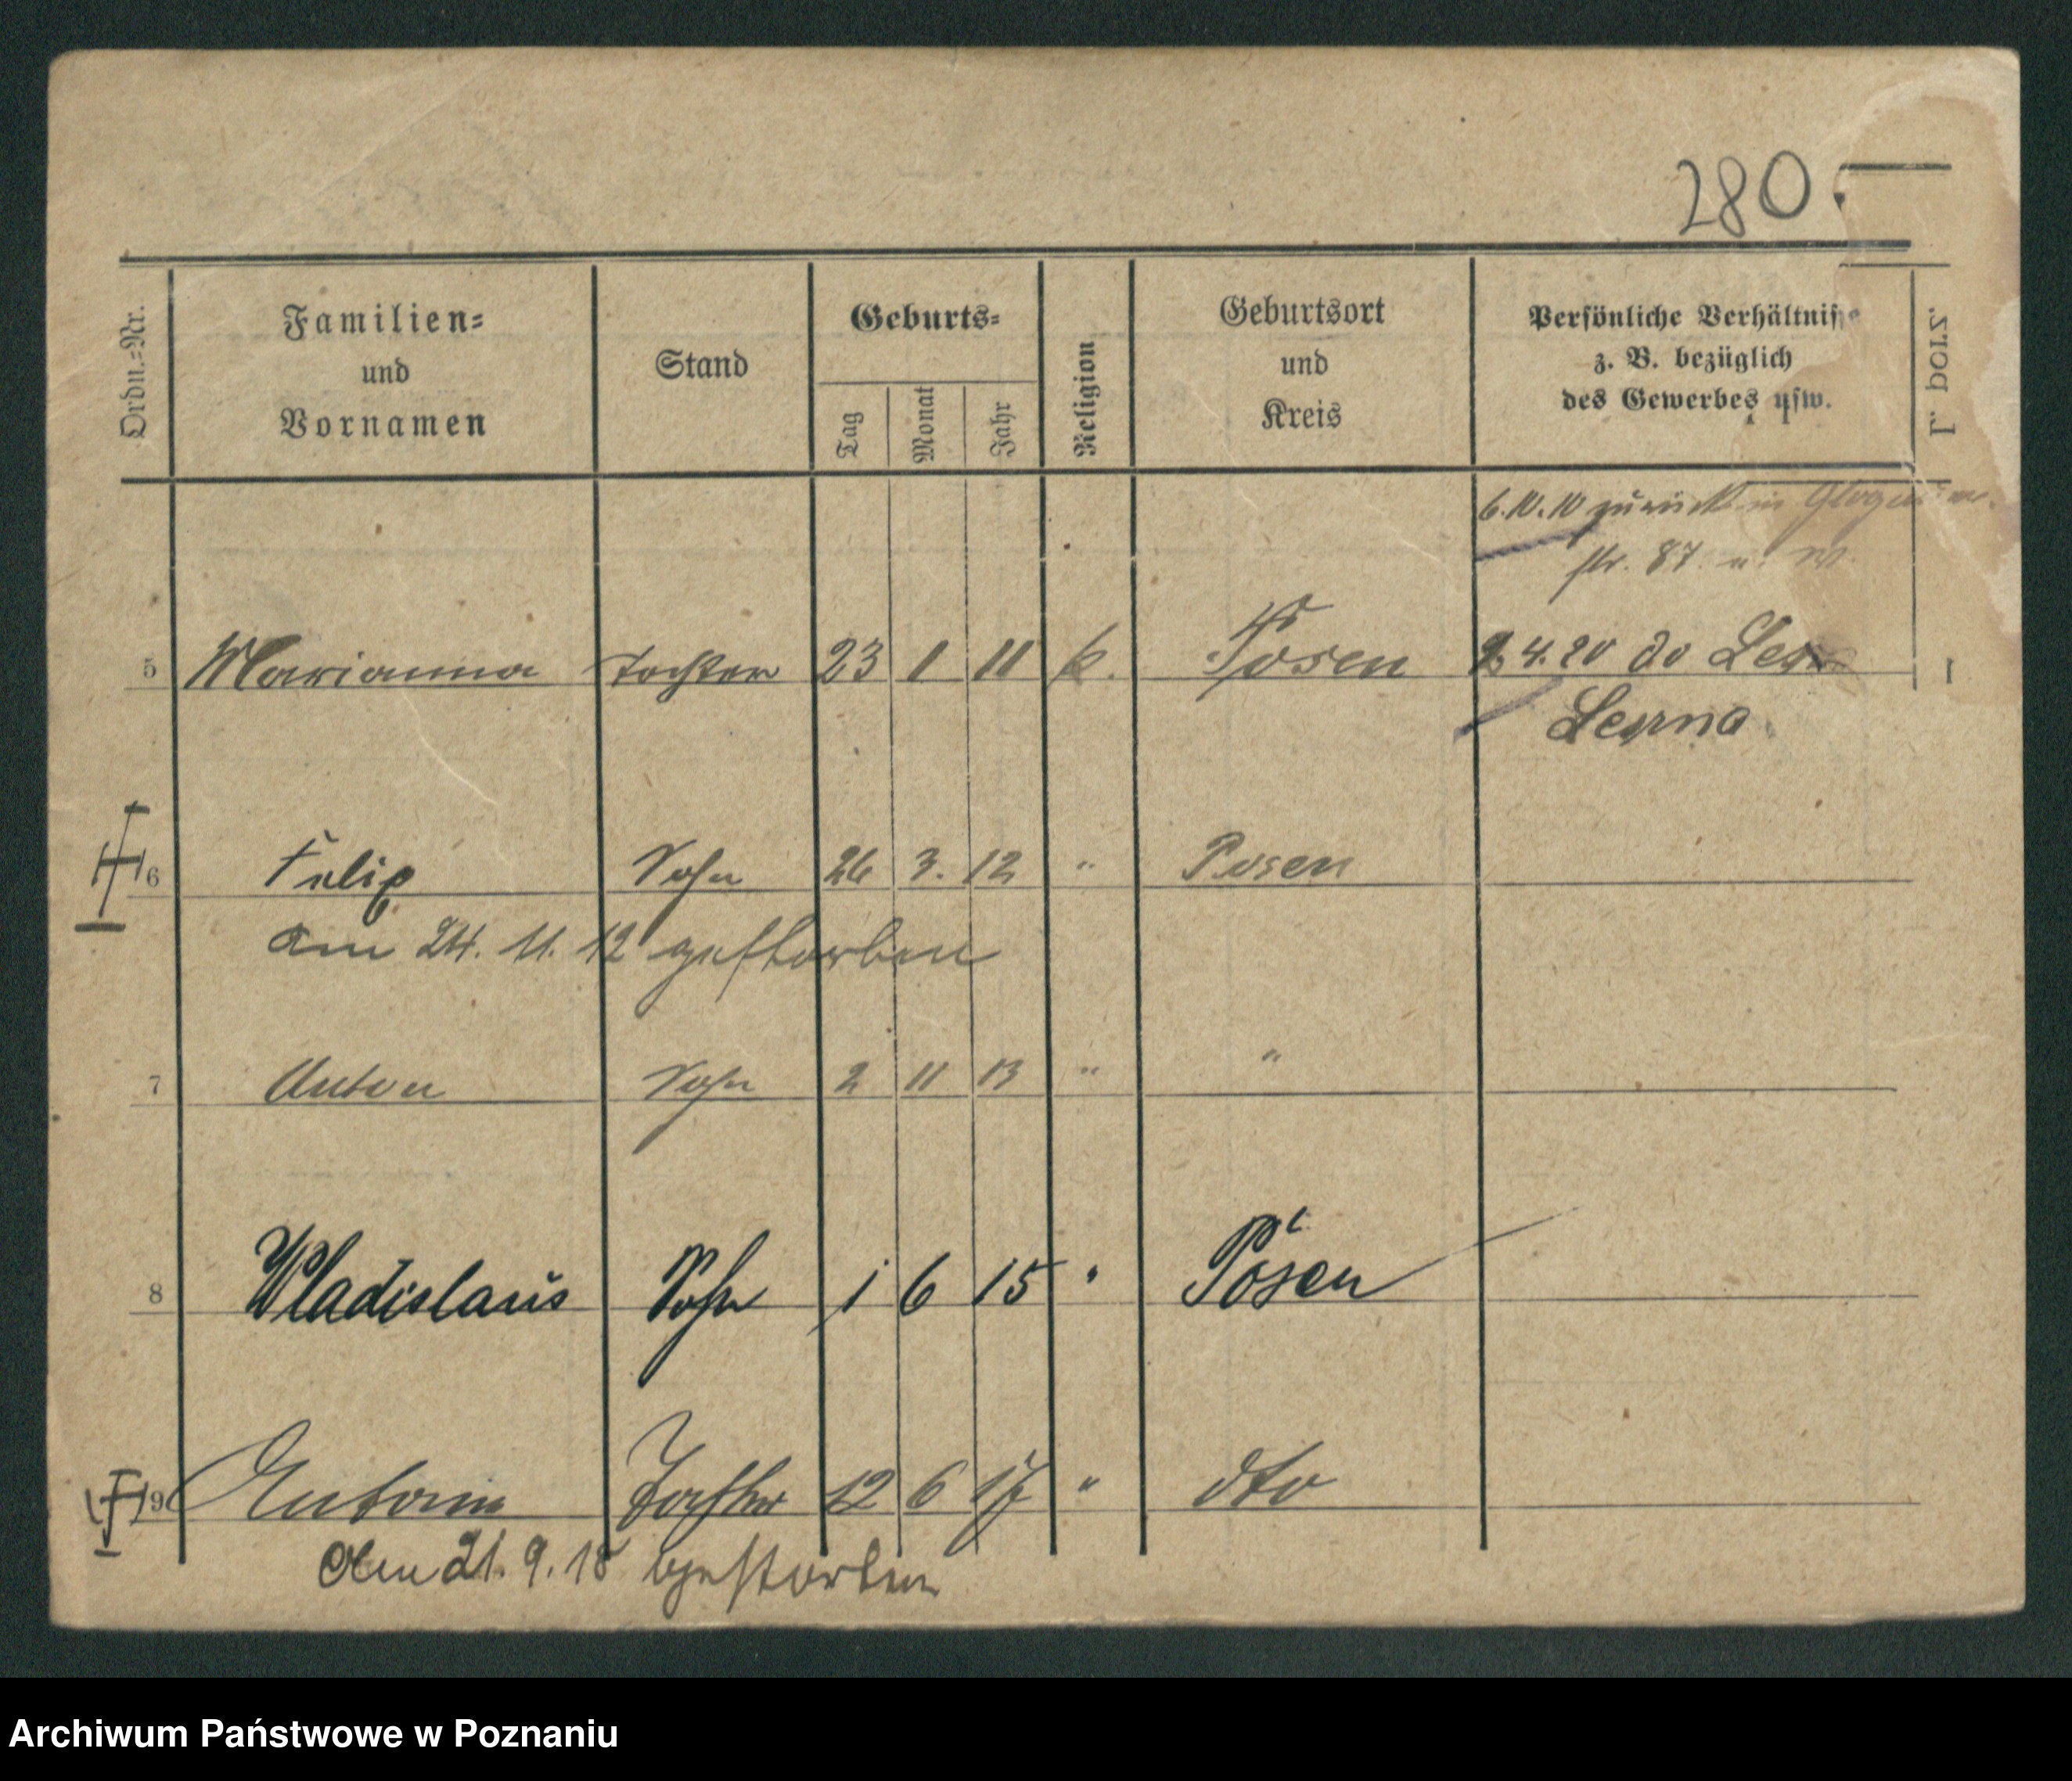 280.
Ordn.=Nr. Familien= und Vornamen Stand Geburts= Tag Monat Jahr Religion Geburtsort und Kreis Persönliche Verhältnisse z. B. bezüglich des Gewerbes usw.
6.10.10 zurück in
str. 87.
5 Marianna Tochter 23 1 11 k. Posen 4.20 do
6 Felix Sohn 26 3. 12 " Posen
am 24. 11. 12 gestorben
7 Anton Sohn 2 11 13 " "
8 Wladislaus Sohn 1 6 15 " Posen
9 Antonin Tochter 12 6 17 " dto
Am 21. 9. 18 gestorben
Archiwum Państwowe w Poznaniu